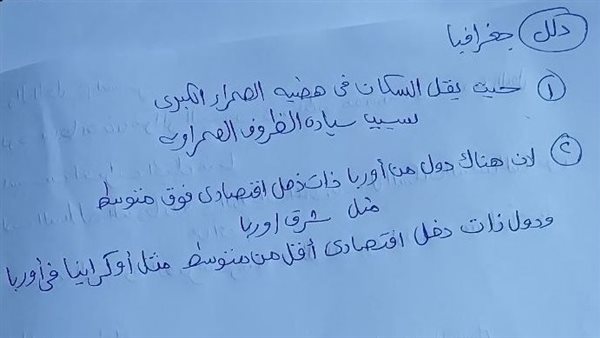 دلل جغرافيا
① حيث يقل السكان فى هضبه الصحراء الكبرى
بسبب سيادة الظروف الصحراويه
② لان هناك دول من أوربا ذات دخل اقتصادى فوق متوسط
مثل شرق اوربا
ودول ذات دخل اقتصادى أقل من متوسط مثل أوكراينيا فى أوربا